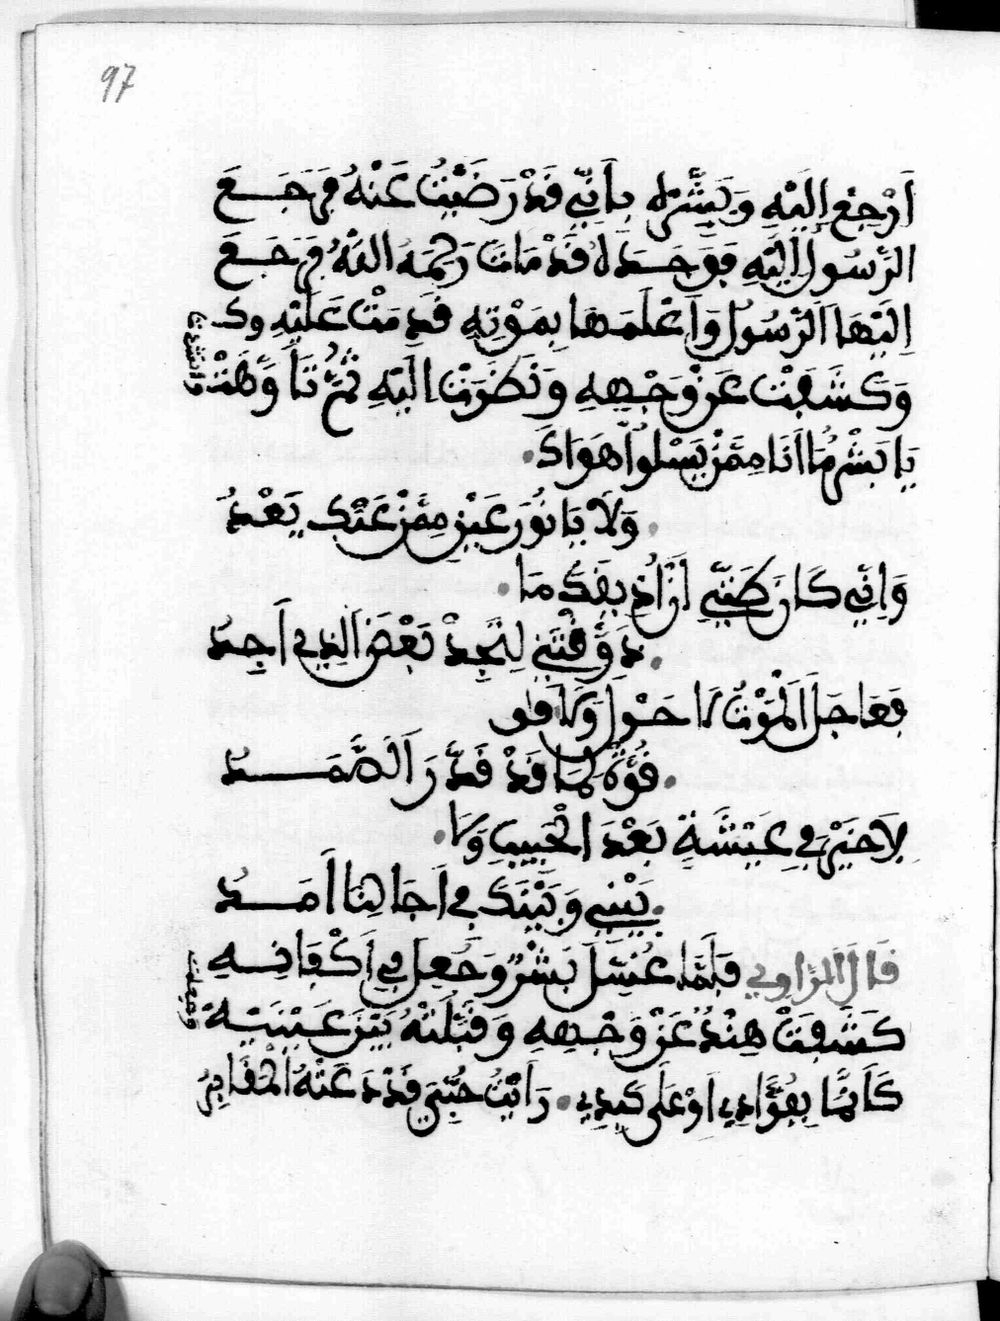 97
اَرْجِعْ إِلَيْهِ وَبَشِّرْهُ بِأَنِّي قَدْ رَضَيْتُ عَنْهُ فَرَجَعَ
الرَّسُولُ اِلَيْهِ فَوَجَدَهُ قَدْ مَاتَ رَحِمَهُ اللَّهُ فَرَجَعَ
اِلَيْهَا الرَّسُولُ وَاَعْلَمَهَا بِمَوْتِهِ فَدِمَتْ عَلَيْهِ وك
وَكَشَفَتْ عَنْ وَجْهِهِ وَنَظَرَتْ اِلَيْهِ ثُمَّ تَأَوَّهَتْ
وانشدت
يَا بَشْرُ مَا اَنَا مِمَّنْ يَسْلُوا هَوَاكَ
وَلَا يَا نُورَ عَيْنِ مِمَّنْ عَنْكَ يَبْعُدُ
وَاِنِّي كَانَ ظَنِّي اَنْ اُذِيقَكَ مَا
ذَوَّقْتَنِي لِتَجِدْ بَعْضَ الَّذِي اَجِدُ
فَعَاجَلَ الْمَوْتُ لَا حَوْلَ وَلَا قو
قُوَّةَ لِمَا قَدْ قَدَّرَ الصَّمَدُ
لَا خَيْرَ فِي عِيشَةٍ بَعْدَ الْحَبِيبِ وَلَا
بَيْنِي وَبَيْنَكَ فِي اَجَالِنَا اَمَدُ
قَالَ الرَّاوِي فَلَمَّا غُسِّلَ بَشْرٌ وَجُعِلَ فِي اَكْفَانِهِ
وجعلت
كَشَفَتْ هِنْدُ عَنْ وَجْهِهِ وَقَبَّلَتْهُ بَيْنَ عَيْنَيْهِ
كَاَنَّمَا بِفُؤَادِي اَوْ عَلَى كَبِدِي رَاَيْتُ حُبِّيَ قَدْ دَعَتْهُ الْمَقَابِرُ